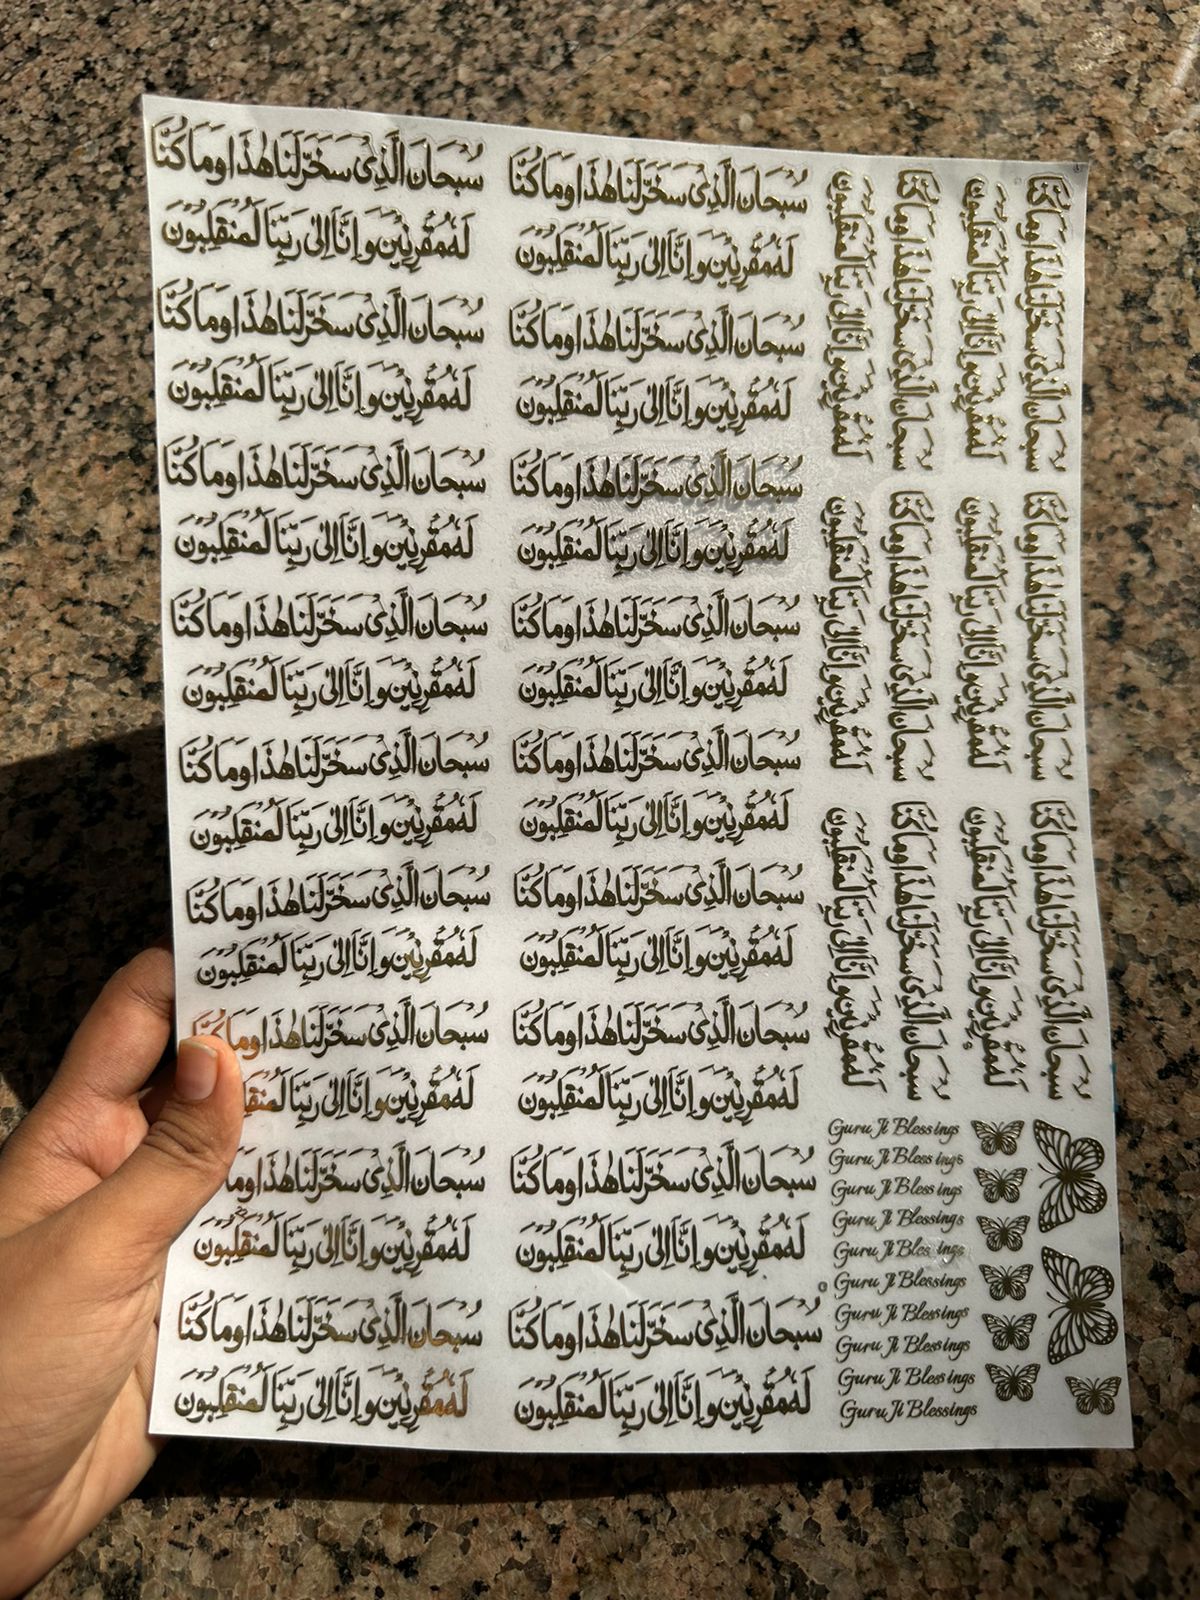 سُبحَانَ الَّذِی سَخَّرَ لَنَا هٰذَا وَمَا كُنَّا
لَهٗ مُقرِنِین وَ اِنَّا اِلٰی رَبِّنَا لَمُنقَلِبُون
سُبحَانَ الَّذِی سَخَّرَ لَنَا هٰذَا وَمَا كُنَّا
لَهٗ مُقرِنِین وَ اِنَّا اِلٰی رَبِّنَا لَمُنقَلِبُون
سُبحَانَ الَّذِی سَخَّرَ لَنَا هٰذَا وَمَا كُنَّا
لَهٗ مُقرِنِین وَ اِنَّا اِلٰی رَبِّنَا لَمُنقَلِبُون
سُبحَانَ الَّذِی سَخَّرَ لَنَا هٰذَا وَمَا كُنَّا
لَهٗ مُقرِنِین وَ اِنَّا اِلٰی رَبِّنَا لَمُنقَلِبُون
سُبحَانَ الَّذِی سَخَّرَ لَنَا هٰذَا وَمَا كُنَّا
لَهٗ مُقرِنِین وَ اِنَّا اِلٰی رَبِّنَا لَمُنقَلِبُون
سُبحَانَ الَّذِی سَخَّرَ لَنَا هٰذَا وَمَا كُنَّا
لَهٗ مُقرِنِین وَ اِنَّا اِلٰی رَبِّنَا لَمُنقَلِبُون
سُبحَانَ الَّذِی سَخَّرَ لَنَا هٰذَا وَمَا كُنَّا
لَهٗ مُقرِنِین وَ اِنَّا اِلٰی رَبِّنَا
سُبحَانَ الَّذِی سَخَّرَ لَنَا هٰذَا وَمَا
لَهٗ مُقرِنِین وَ اِنَّا اِلٰی رَبِّنَا لَمُنقَلِبُون
سُبحَانَ الَّذِی سَخَّرَ لَنَا هٰذَا وَمَا كُنَّا
لَهٗ مُقرِنِین وَ اِنَّا اِلٰی رَبِّنَا لَمُنقَلِبُون
سُبحَانَ الَّذِی سَخَّرَ لَنَا هٰذَا وَمَا كُنَّا
لَهٗ مُقرِنِین وَ اِنَّا اِلٰی رَبِّنَا لَمُنقَلِبُون
سُبحَانَ الَّذِی سَخَّرَ لَنَا هٰذَا وَمَا كُنَّا
لَهٗ مُقرِنِین وَ اِنَّا اِلٰی رَبِّنَا لَمُنقَلِبُون
سُبحَانَ الَّذِی سَخَّرَ لَنَا هٰذَا وَمَا كُنَّا
لَهٗ مُقرِنِین وَ اِنَّا اِلٰی رَبِّنَا لَمُنقَلِبُون
سُبحَانَ الَّذِی سَخَّرَ لَنَا هٰذَا وَمَا كُنَّا
لَهٗ مُقرِنِین وَ اِنَّا اِلٰی رَبِّنَا لَمُنقَلِبُون
سُبحَانَ الَّذِی سَخَّرَ لَنَا هٰذَا وَمَا كُنَّا
لَهٗ مُقرِنِین وَ اِنَّا اِلٰی رَبِّنَا لَمُنقَلِبُون
سُبحَانَ الَّذِی سَخَّرَ لَنَا هٰذَا وَمَا كُنَّا
لَهٗ مُقرِنِین وَ اِنَّا اِلٰی رَبِّنَا لَمُنقَلِبُون
سُبحَانَ الَّذِی سَخَّرَ لَنَا هٰذَا وَمَا كُنَّا
لَهٗ مُقرِنِین وَ اِنَّا اِلٰی رَبِّنَا لَمُنقَلِبُون
سُبحَانَ الَّذِی سَخَّرَ لَنَا هٰذَا وَمَا كُنَّا
لَهٗ مُقرِنِین وَ اِنَّا اِلٰی رَبِّنَا لَمُنقَلِبُون
سُبحَانَ الَّذِی سَخَّرَ لَنَا هٰذَا وَمَا كُنَّا
لَهٗ مُقرِنِین وَ اِنَّا اِلٰی رَبِّنَا لَمُنقَلِبُون
سُبحَانَ الَّذِی سَخَّرَ لَنَا هٰذَا وَمَا كُنَّا
لَهٗ مُقرِنِین وَ اِنَّا اِلٰی رَبِّنَا لَمُنقَلِبُون
سُبحَانَ الَّذِی سَخَّرَ لَنَا هٰذَا وَمَا كُنَّا
لَهٗ مُقرِنِین وَ اِنَّا اِلٰی رَبِّنَا لَمُنقَلِبُون
سُبحَانَ الَّذِی سَخَّرَ لَنَا هٰذَا وَمَا كُنَّا
لَهٗ مُقرِنِین وَ اِنَّا اِلٰی رَبِّنَا لَمُنقَلِبُون
سُبحَانَ الَّذِی سَخَّرَ لَنَا هٰذَا وَمَا كُنَّا
لَهٗ مُقرِنِین وَ اِنَّا اِلٰی رَبِّنَا لَمُنقَلِبُون
سُبحَانَ الَّذِی سَخَّرَ لَنَا هٰذَا وَمَا كُنَّا
لَهٗ مُقرِنِین وَ اِنَّا اِلٰی رَبِّنَا لَمُنقَلِبُون
سُبحَانَ الَّذِی سَخَّرَ لَنَا هٰذَا وَمَا كُنَّا
لَهٗ مُقرِنِین وَ اِنَّا اِلٰی رَبِّنَا لَمُنقَلِبُون
Guru Ji Blessings
Guru Ji Blessings
Guru Ji Blessings
Guru Ji Blessings
Guru Ji Bles ings
Guru Ji Blessings
Guru Ji Blessings
Guru Ji Blessings
Guru Ji Blessings
Guru Ji Blessings